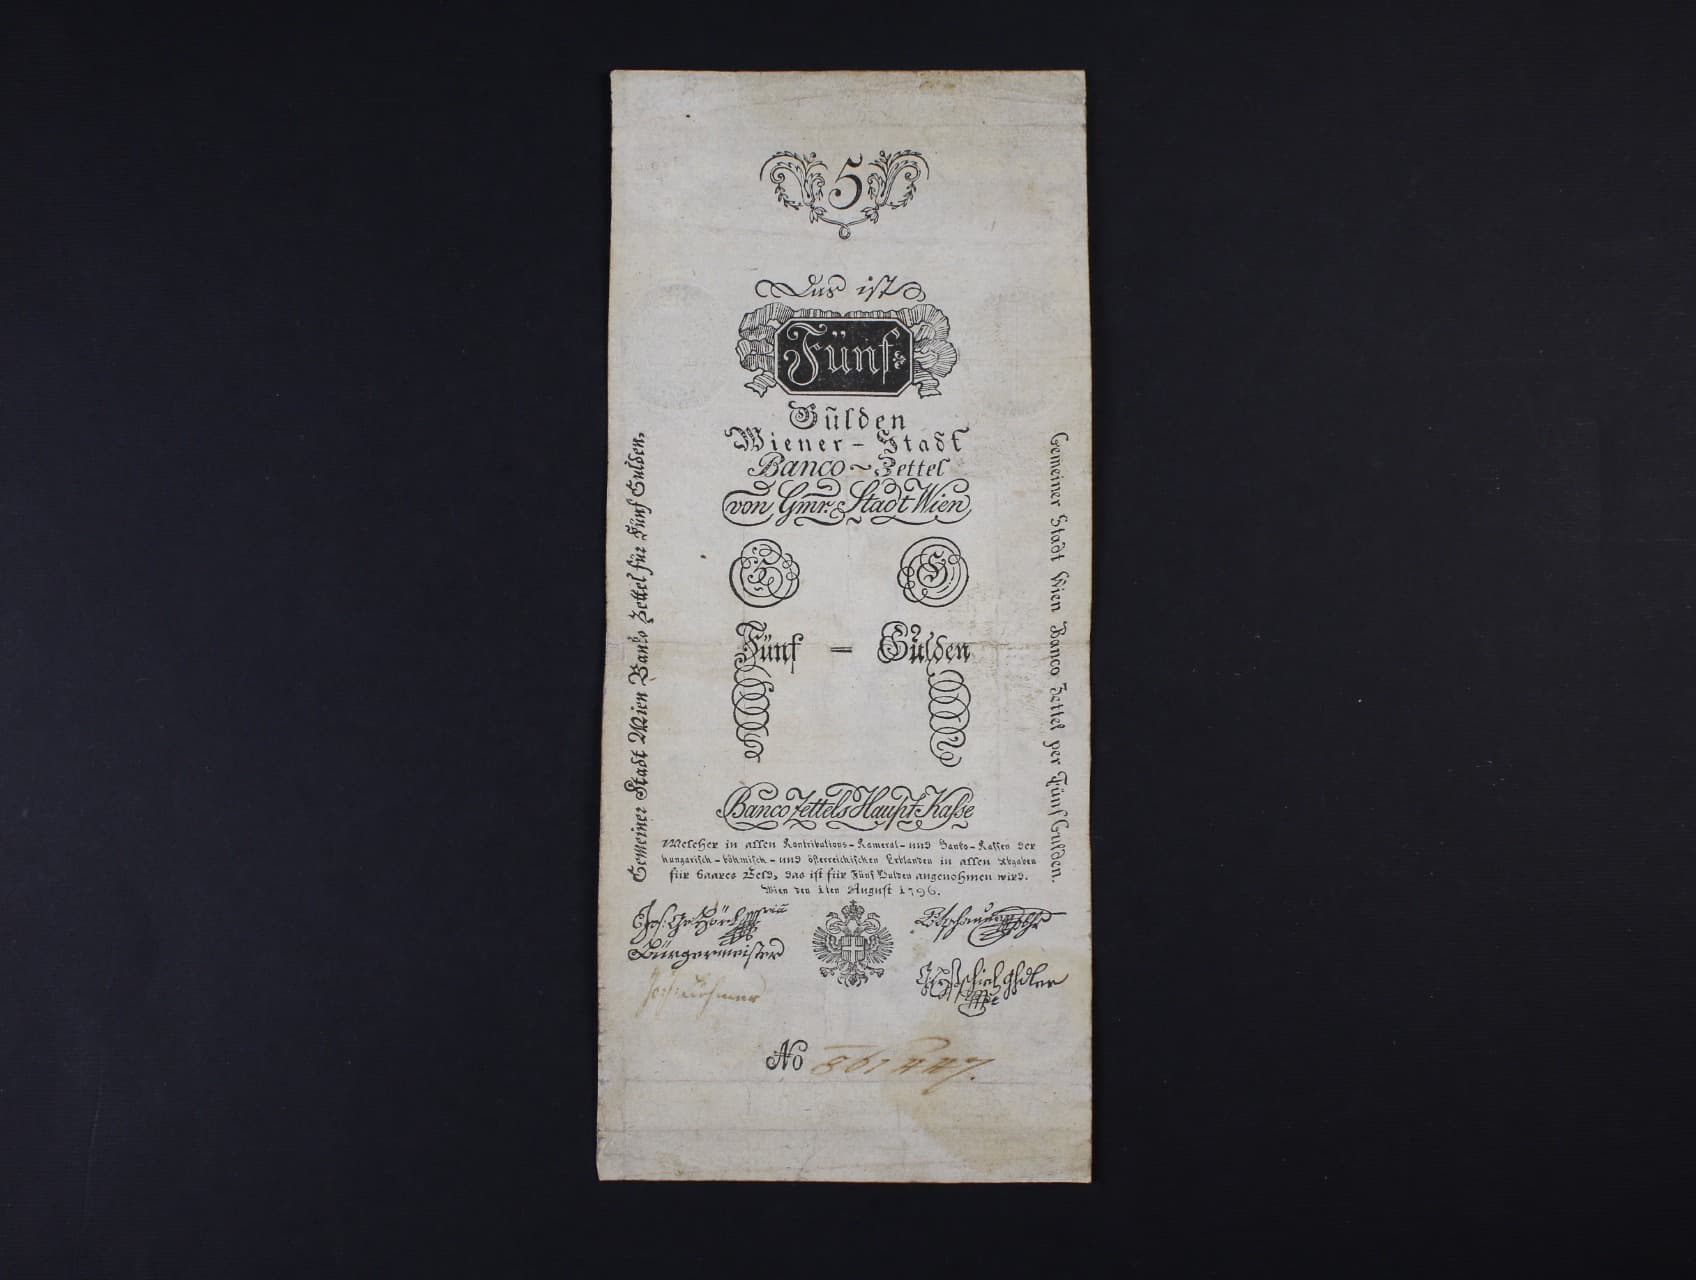 5
Das ist
Fünf
Gulden
Wiener-Stadt
Banco-Zettel
von Gmr. Stadt Wien
Fünf = Gulden
Banco Zettels Haupt-Kasse
Welcher in allen Kontributions-Kameral-und Banko-Kassen der
hungarisch-böhmisch-und österreichischen Erblanden in allen Abgaben
für baares Geld, das ist für Fünf Gulden angenohmen wird.
Wien den 1ten August 1796.
Gemeiner Stadt Wien Banko Zettel für Fünf Gulden.
Gemeiner Stadt Wien Banco Zettel per Fünf Gulden.
Bürgermeister
No